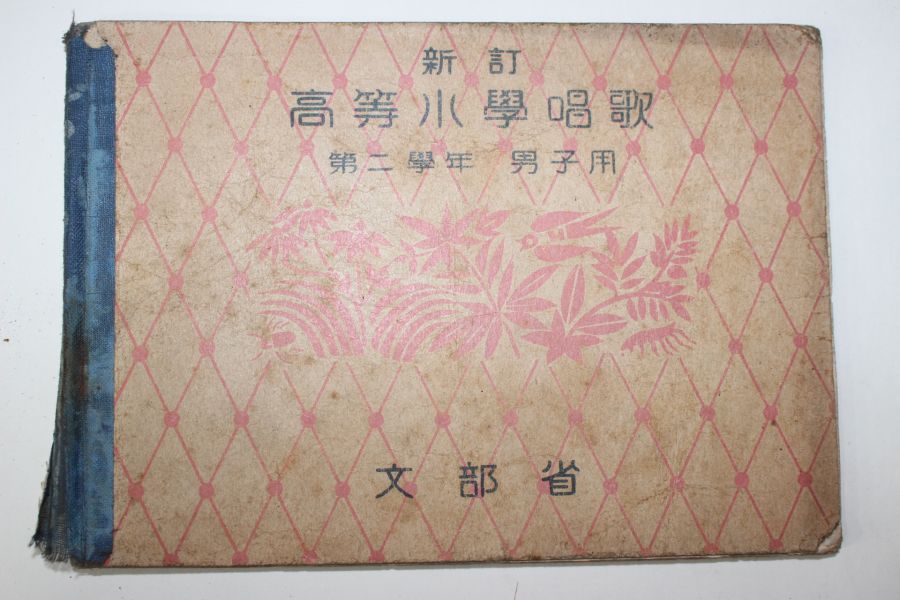 新訂
高等小學唱歌
第二學年 男子用
文部省